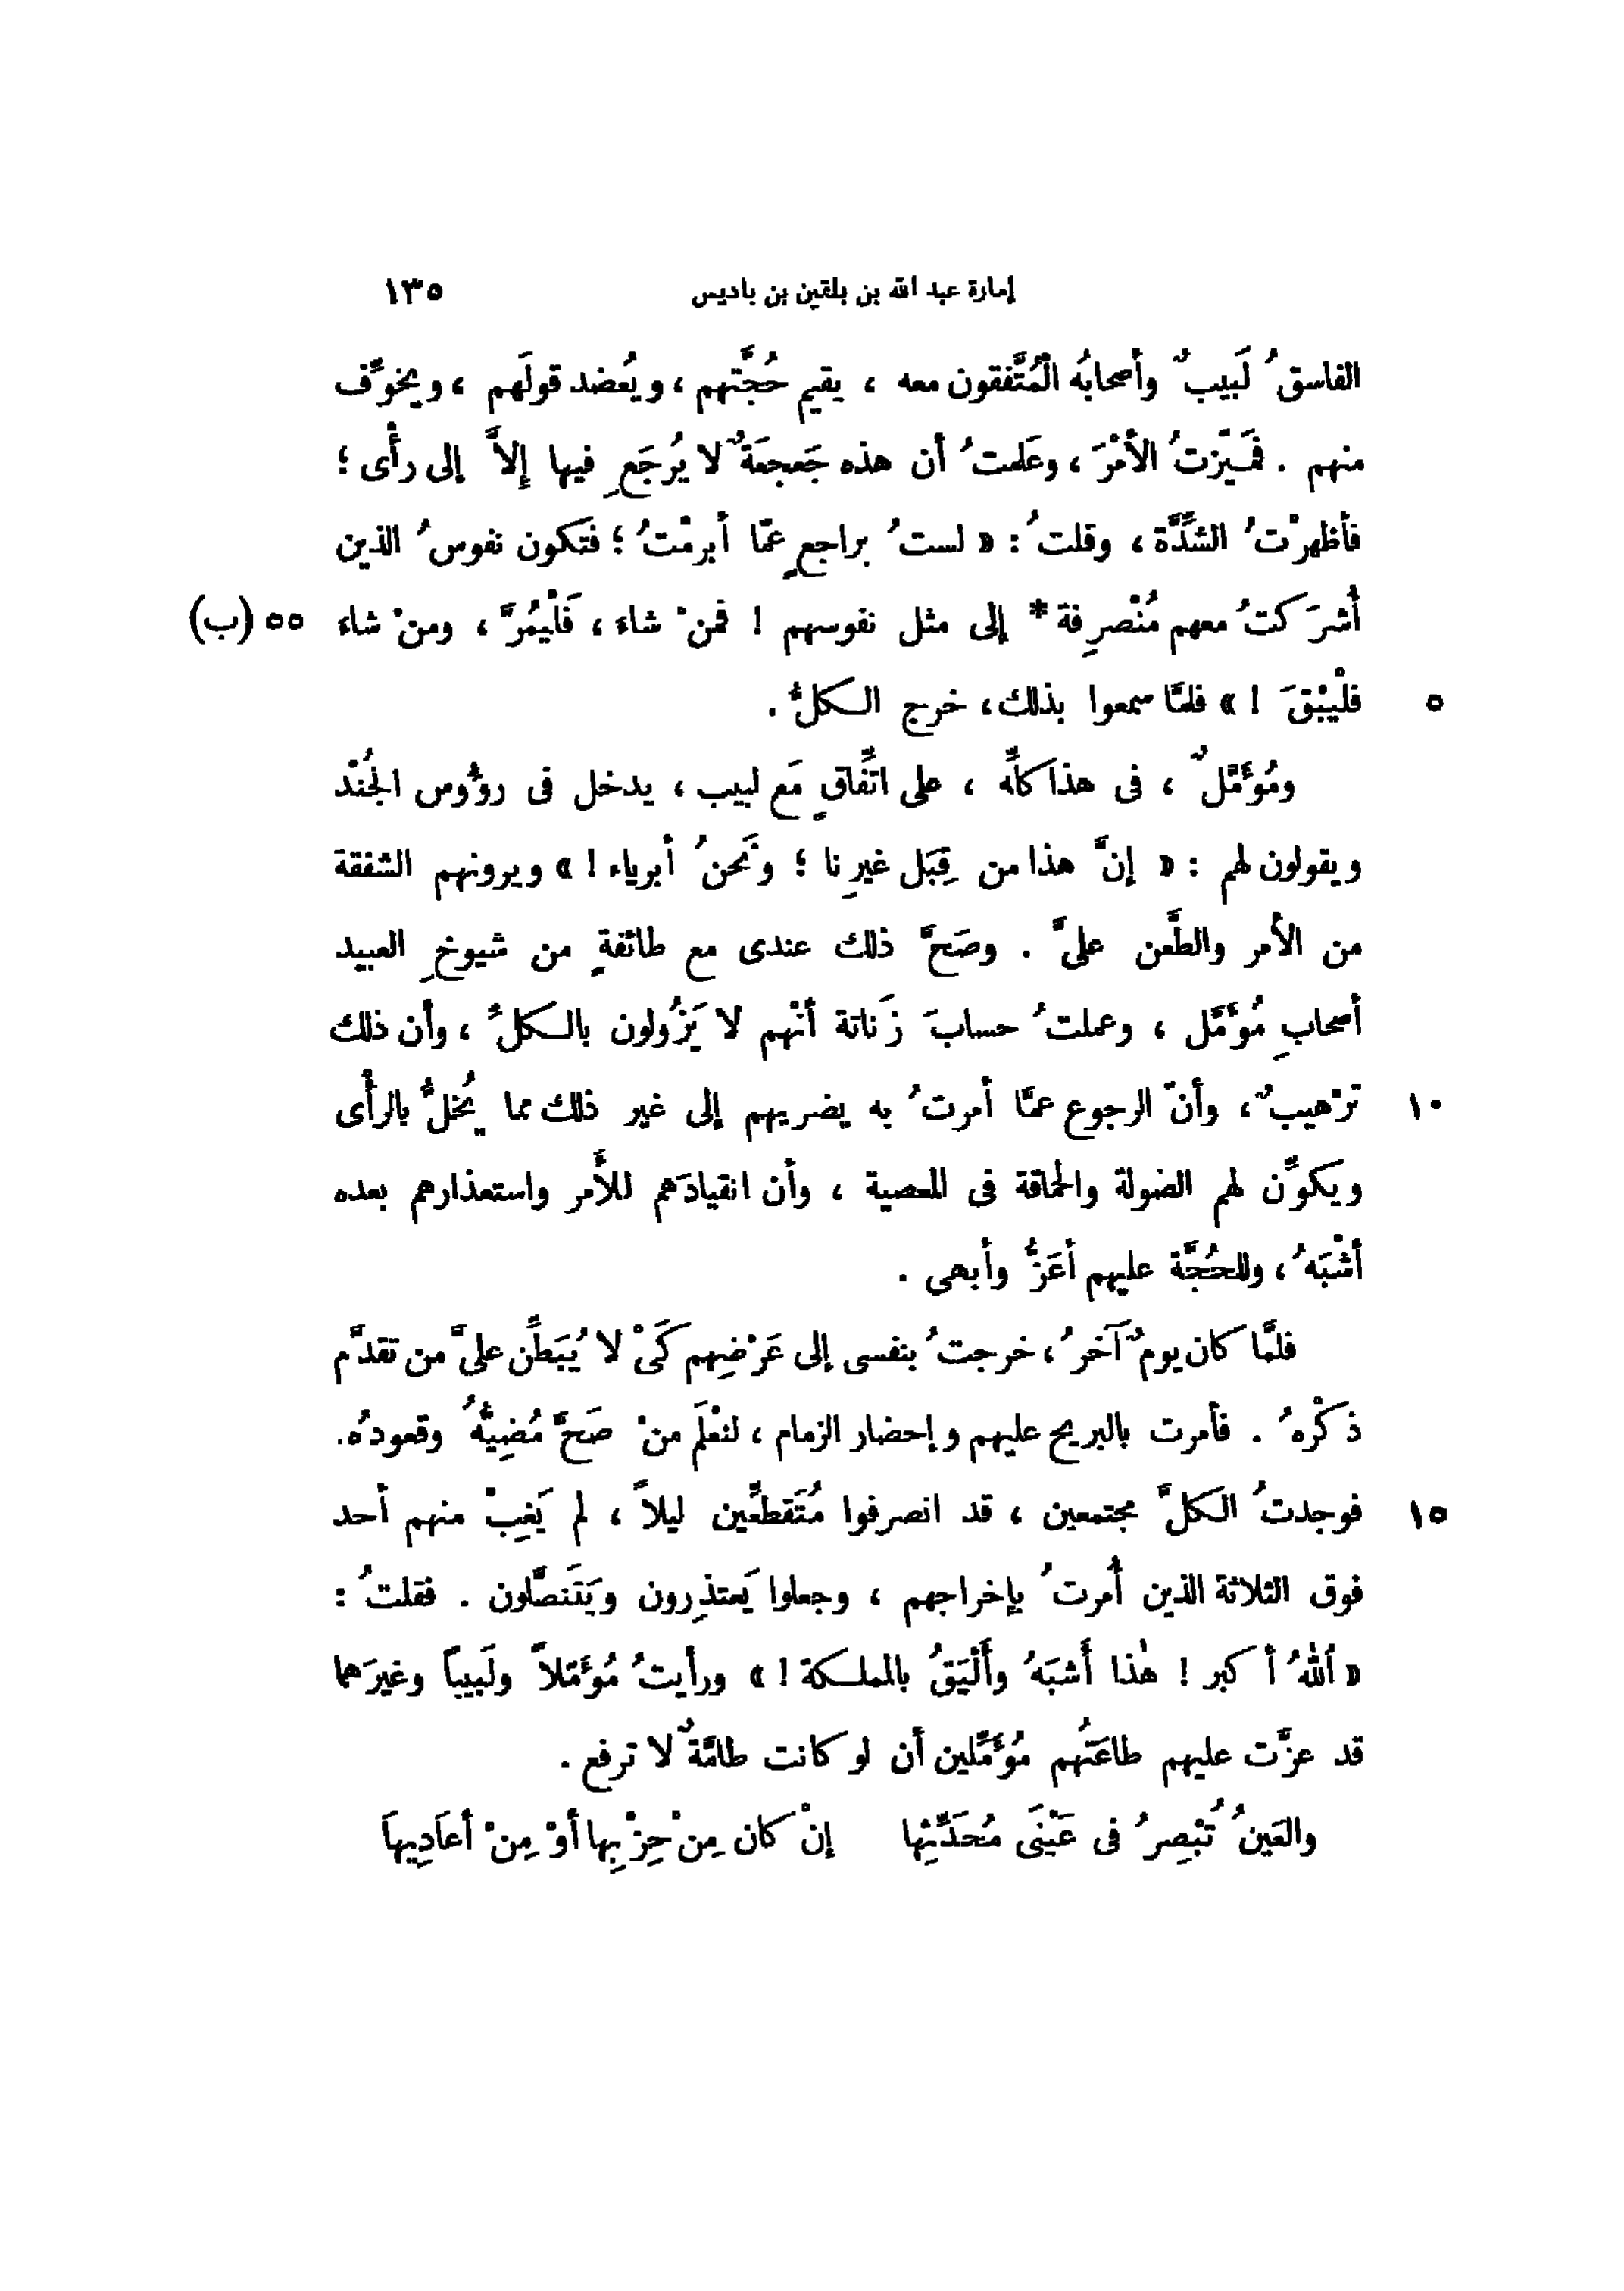 إمارة عبد الله بن بلقين بن باديس ١٣٥
الفاسقُ لَبيبٌ وأصحابُه الْمُتَّفقون معه ، يقيم حُجَّتهم ، ويُعضد قولَهم ، ويخوِّف
منهم . فمَيّزتُ الأمْرَ ، وعَلمتُ أن هذه جَعجعَةٌ لا يُرجَعِ فيها إلاَّ إلى رأْى ؛
فأظهرْتُ الشدَّة ، وقلتُ : « لستُ براجعٍ عمّا أبرمْتُ ؛ فتَكون نفوسُ الذين
أُشرَكتُ معهم مُنْصرِفة * إلى مثل نفوسهم ! فمنْ شاء ، فَلْيمُرَّ ، ومنْ شاء ٥٥ (ب)
٥ فلْيَبْقَ ! » فلمَّا سمعوا بذلك ، خرج الكلُّ .
ومُؤَمَّلٌ ، فى هذا كلِّه ، على اتِّفاقٍ مَع لبيب ، يدخل فى رؤُوس الجُنْد
ويقولون لهم : « إنَّ هذا من قِبَل غيرِنا ؛ ونَحنُ أبرياء ! » ويرونهم الشفقة
من الأمر والطَّعن علىَّ . وصَحَّ ذلك عندى مع طائفةٍ من شيوخِ العبيد
أصحابِ مُؤَمَّل ، وعملتُ حسابَ زَناتة أنْهم لا يَزُولون بالكلِّ ، وأن ذلك
١٠ ترْهيبٌ ، وأنّ الرجوع عمَّا أمرتُ به يضريهم إلى غير ذلك مما يُخلُّ بالرأْى
ويكوِّن لهم الضولة والحماقة فى المعصية ، وأن انقيادَهم للأَمر واستعذارهم بعده
أشْبَهُ ، وللحُجَّة عليهم أعَزُّ وأبهى .
فلمَّا كان يومٌ آخرُ ، خرجتُ بنفسى إلى عَرْضِهم كَىْ لا يُبَطِّن علىَّ من تقدَّم
ذكْرهُ . فأمرت بالبريح عليهم وإحضار الزمام ، لنعْلَم منْ صَحَّ مُضِيُّهُ وقعودُه .
١٥ فوجدتُ الكلَّ مجتمعين ، قد انصرفوا مُتَقطِّعين ليلاً ، لم يَغِبْ منهم أحد
فوق الثلاثة الذين أُمرتُ بإخراجهم ، وجعلوا يَعتذِرون ويَتَنصَّلون . فقلتُ :
« اَللهُ أكبر ! هٰذا أَشبَهُ وأَلْيَقُ بالمملكة ! » ورأيتُ مُؤَمَّلاً ولَبيباً وغيرَهما
قد عزَّت عليهم طاعَتُهم مُؤَمِّلين أن لو كانت طامَّةٌ لا ترفع .
والعَينُ تُبْصِرُ فى عَيْنَى مُحَدِّثِها إنْ كان مِنْ حِزْبِها أوْ مِنْ أعاَدِيهاَ